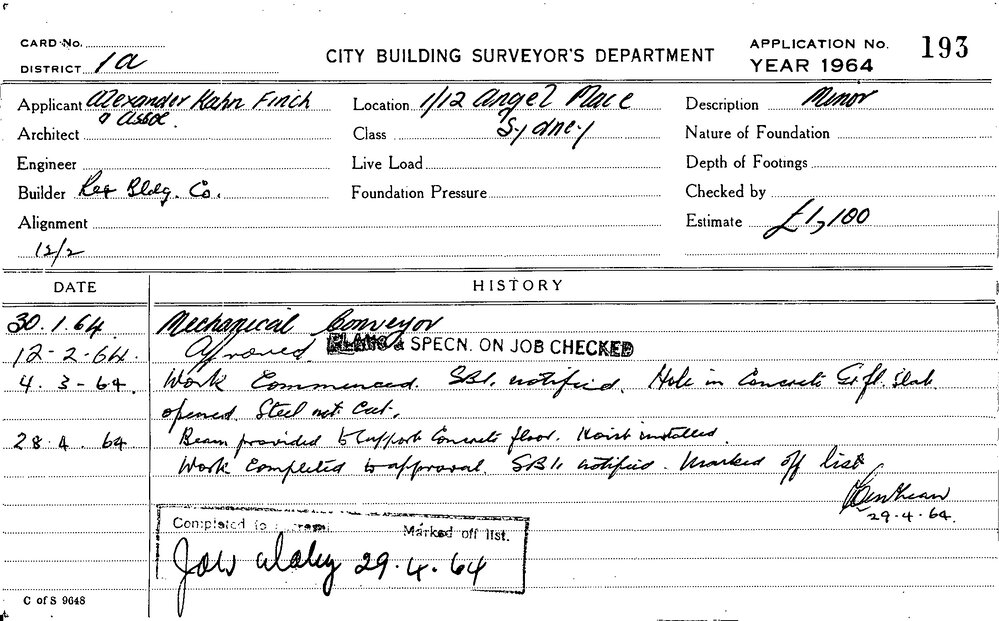 CARD No.
DISTRICT 1a
CITY BUILDING SURVEYOR'S DEPARTMENT
APPLICATION No. 193
YEAR 1964
Applicant Alexander Kahn Finch
& Assoc.
Location 1/12 Angel Place
Sydney
Description Minor
Architect
Class
Nature of Foundation
Engineer
Live Load
Depth of Footings
Builder Bldg. Co.
Foundation Pressure
Checked by
Alignment
Estimate £1,100
12/2
DATE
HISTORY
30.1.64 Mechanical Conveyor
12-2-64. Approved PLANS & SPECN. ON JOB CHECKED
4.3-64. Work Commenced. SBI. notified. Hole in Concrete Gr. fl. slab
opened. Steel not cut.
28.4.64 Beam provided to support Concrete floor. Hoist installed.
Work Completed to approval. SBI. notified. Marked off list
29.4.64.
Completed to Marked off list.
29.4.64
C of S 9648